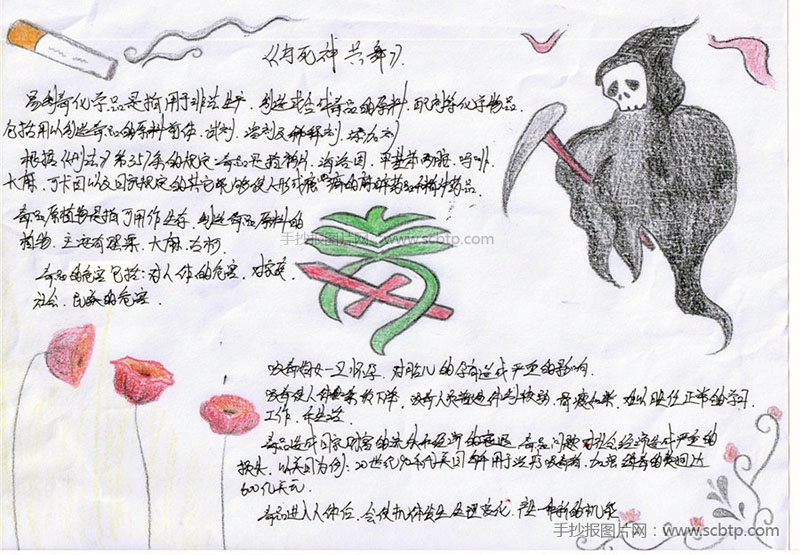 《与死神共舞》
易制毒化学品是指用于非法生产、制造或合成毒品的原料、配剂等化学物品,
包括用以制造毒品的原料前体、试剂、溶剂及稀释剂、添加剂
根据《刑法》第357条的规定 毒品是指鸦片、海洛因、甲基苯丙胺、吗啡、
大麻、可卡因以及国家规定的其它能够使人形成瘾癖的麻醉药品和精神药品
毒品原植物是指可用作生产、制造毒品原料的
植物、主要有罂粟、大麻、古柯
手抄报图片网:www.scbtp.com
毒品的危害包括:对人体的危害、对家庭
社会、民族的危害
吸毒妇女一旦怀孕、对胎儿的孕育造成严重的影响
吸毒使人体 下降、吸毒人员普遍 、难以胜任正常的学习
工作、
毒品造成国家财富的 和经济的 毒品问题对社会经济造成严重的
损失、以美国为例:20世纪90年代美国每年用于 的费用达
600亿美元
毒品进入人体后、会使机体发生
手抄报图片网:www.scbtp.com